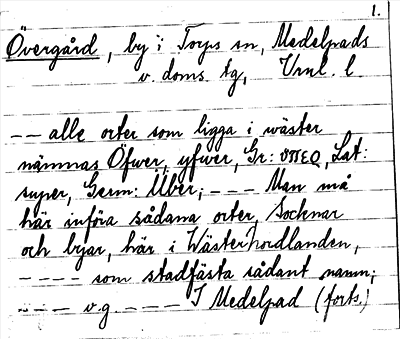 1.
Övergård, by i Torps sn, Medelpads
v. doms. tg, Vrnl. l
-- alle orter som ligga i wäster
nämnas Öfwer, yfwer, Gr: υπερ, Lat:
super, Germ: Über; --- Man må
här införa sådana orter, Socknar
och byar, här i Wästernordlanden,
---- som stadfästa sådant namn;
---- v.g. ---- I Medelpad (forts.)